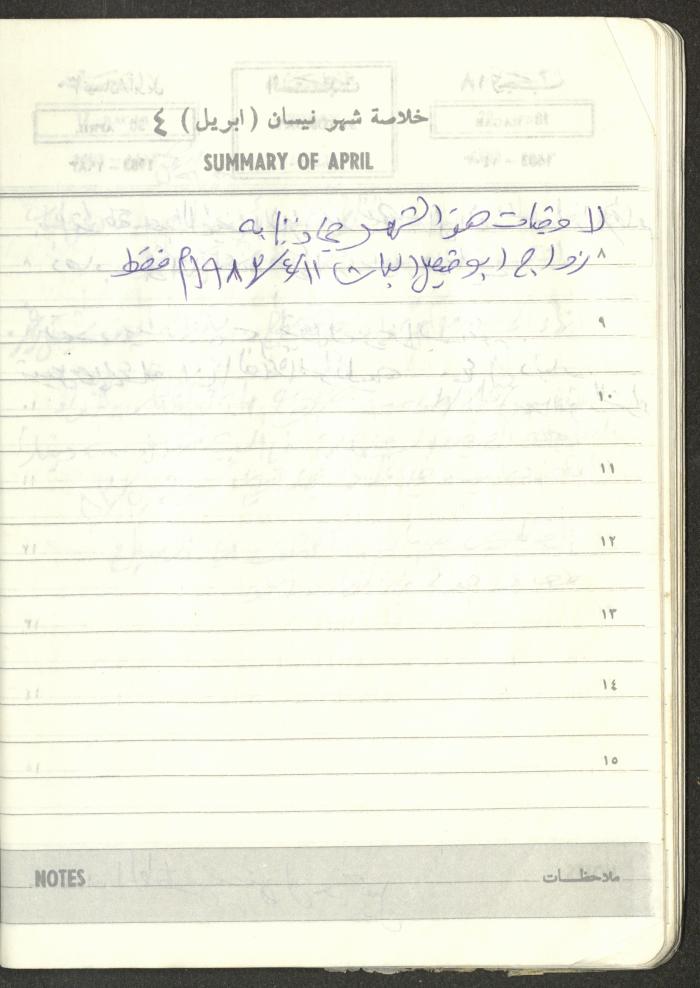 خلاصة شهر نيسان (ابريل) ٤
SUMMARY OF APRIL
لا وفيات هذا الشهر
٨
زواج ابو فيصل ١٩٨٣/٤/١١م فقط
٩
١٠
١١
١٢
١٣
١٤
١٥
NOTES ملاحظات